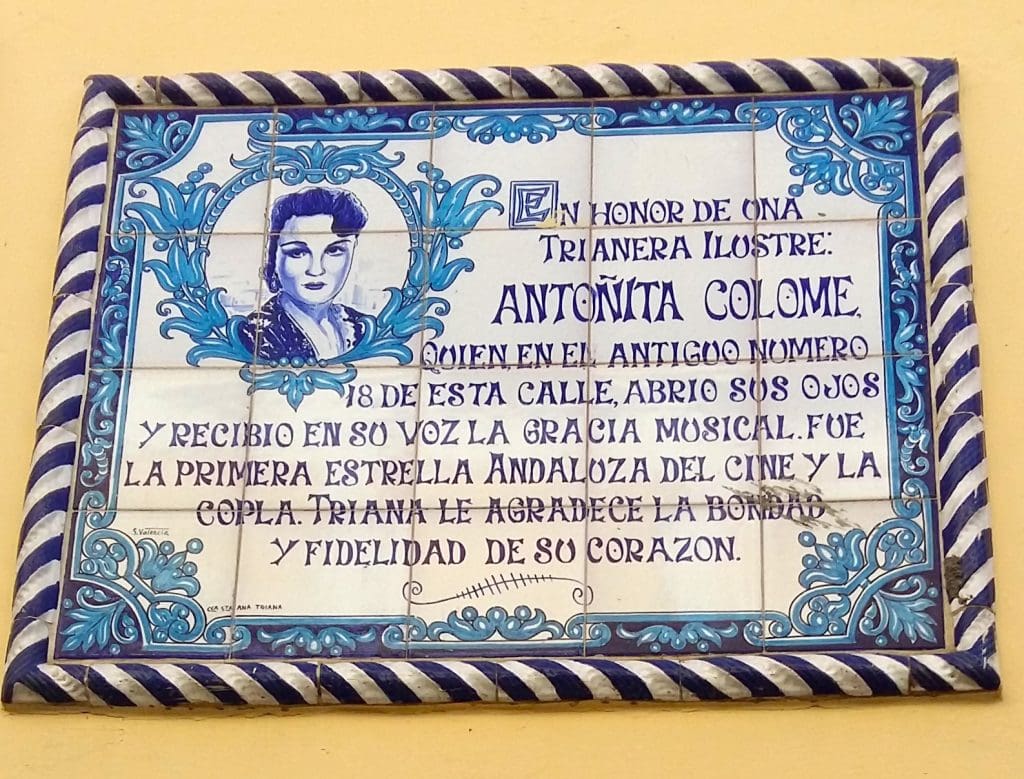 EN HONOR DE UNA
TRIANERA ILUSTRE:
ANTOÑITA COLOME,
QUIEN, EN EL ANTIGUO NUMERO
18 DE ESTA CALLE, ABRIO SUS OJOS
Y RECIBIO EN SU VOZ LA GRACIA MUSICAL. FUE
LA PRIMERA ESTRELLA ANDALUZA DEL CINE Y LA
COPLA. TRIANA LE AGRADECE LA BONDAD
Y FIDELIDAD DE SU CORAZON.
S. Valencia
CER STA ANA TRIANA